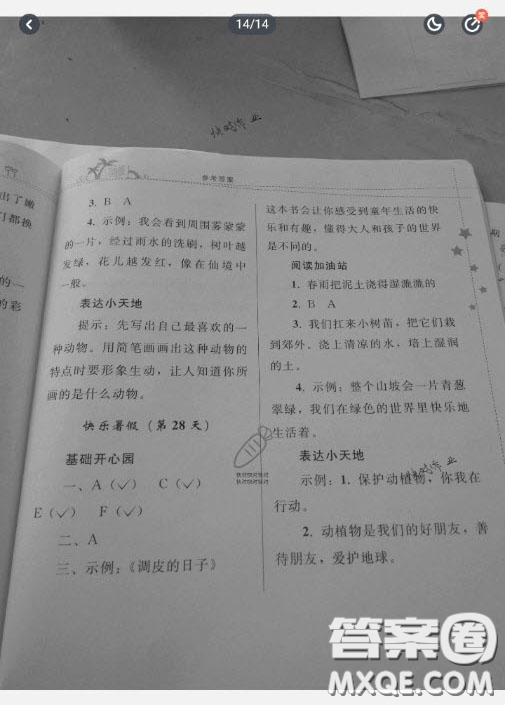 14/14
买
快对作业
参考答案
出了嫩
们都换
的一
的彩
3. B A
4. 示例：我会看到周围雾蒙蒙
的一片，经过雨水的洗刷，树叶越
发绿，花儿越发红，像在仙境中
一般。
表达小天地
提示：先写出自己最喜欢的一
种动物。用简笔画画出这种动物的
特点时要形象生动，让人知道你所
画的是什么动物。
快乐暑假（第 28 天）
基础开心园
一、A（✓） C（✓）
E（✓） F（✓）
二、A
三、示例：《调皮的日子》
这本书会让你感受到童年生活的快
乐和有趣，懂得大人和孩子的世界
是不同的。
阅读加油站
1. 春雨把泥土浇得湿漉漉的
2. B A
3. 我们扛来小树苗，把它们栽
到郊外。浇上清凉的水，培上湿润
的土。
4. 示例：整个山坡会一片青葱
翠绿，我们在绿色的世界里快乐地
生活着。
表达小天地
示例：1. 保护动植物，你我在
行动。
2. 动植物是我们的好朋友，善
待朋友，爱护地球。
快对作业
快对快对快对
快对快对快对
答案圈
MXQE.COM